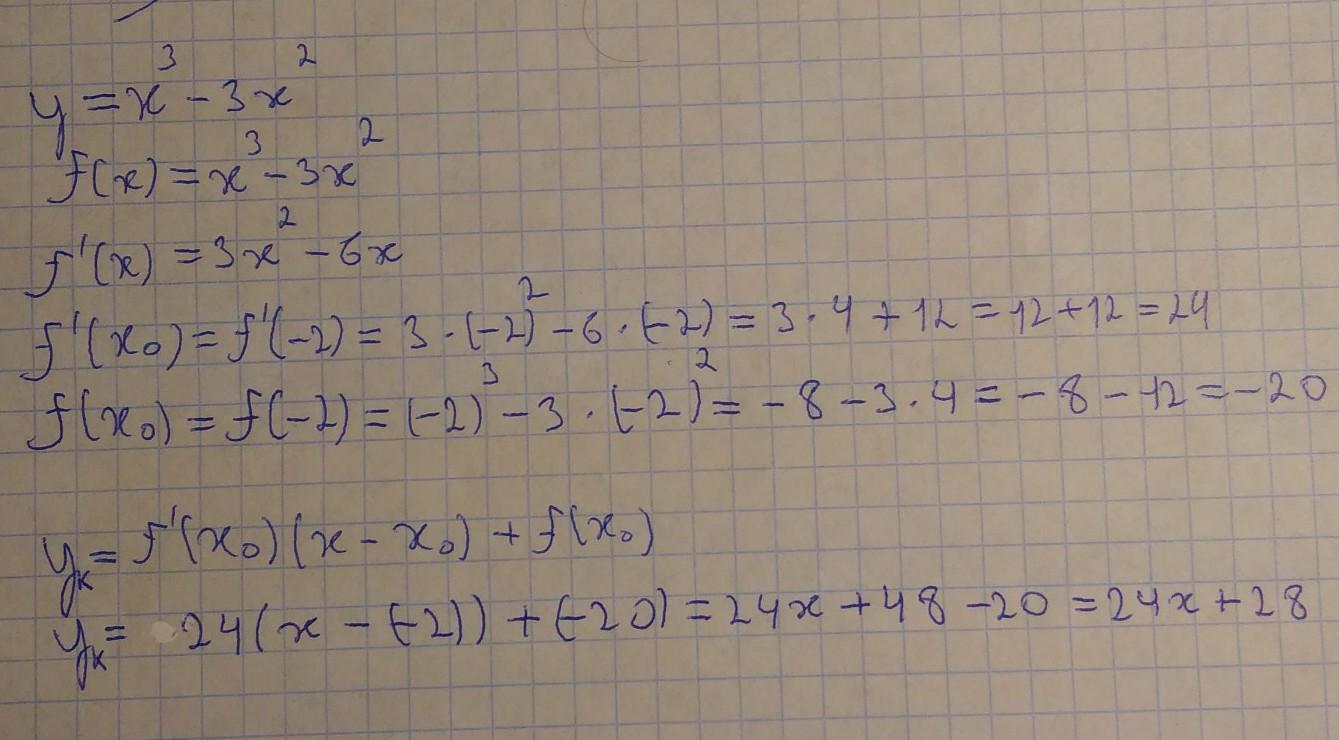 y = x³ - 3x²
f(x) = x³ - 3x²
f'(x) = 3x² - 6x
f'(x₀) = f'(-2) = 3 · (-2)² - 6 · (-2) = 3 · 4 + 12 = 12 + 12 = 24
f(x₀) = f(-2) = (-2)³ - 3 · (-2)² = -8 - 3 · 4 = -8 - 12 = -20
yₖ = f'(x₀)(x - x₀) + f(x₀)
yₖ = 24(x - (-2)) + (-20) = 24x + 48 - 20 = 24x + 28